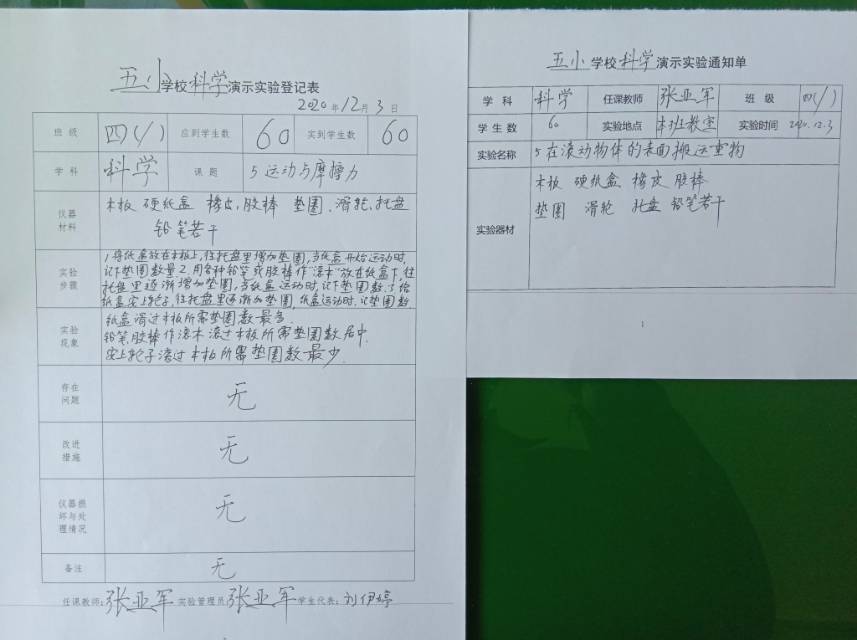 五小学校科学演示实验登记表
2020年12月3日
班级 四(1) 应到学生数 60 实到学生数 60
学科 科学 课题 5 运动与摩擦力
仪器材料 木板 硬纸盒 橡皮,胶棒 垫圈、滑轮、托盘
铅笔若干
实验步骤 1将纸盒放在木板上,往托盘里增加垫圈,当纸盒开始运动时,
记下垫圈数量2.用各种铅笔或胶棒作"滚木"放在纸盒下,往
托盘里逐渐增加垫圈,当纸盒运动时,记下垫圈数.3给
纸盒安上轮子,往托盘里逐渐加垫圈,纸盒运动时.记垫圈数
实验现象 纸盒滑过木板所需垫圈数最多.
铅笔,胶棒作滚木滚过木板所需垫圈数居中.
安上轮子滚过木板所需垫圈数最少.
存在问题 无
改进措施 无
仪器损坏与处理情况 无
备注 无
任课教师:张亚军 实验管理员:张亚军 学生代表:刘伊婷
五小学校科学演示实验通知单
学科 科学 任课教师 张亚军 班级 四(1)
学生数 60 实验地点 本班教室 实验时间 2020.12.3
实验名称 5在滚动物体的表面搬运重物
实验器材 木板 硬纸盒 橡皮 胶棒
垫圈 滑轮 托盘 铅笔若干
1